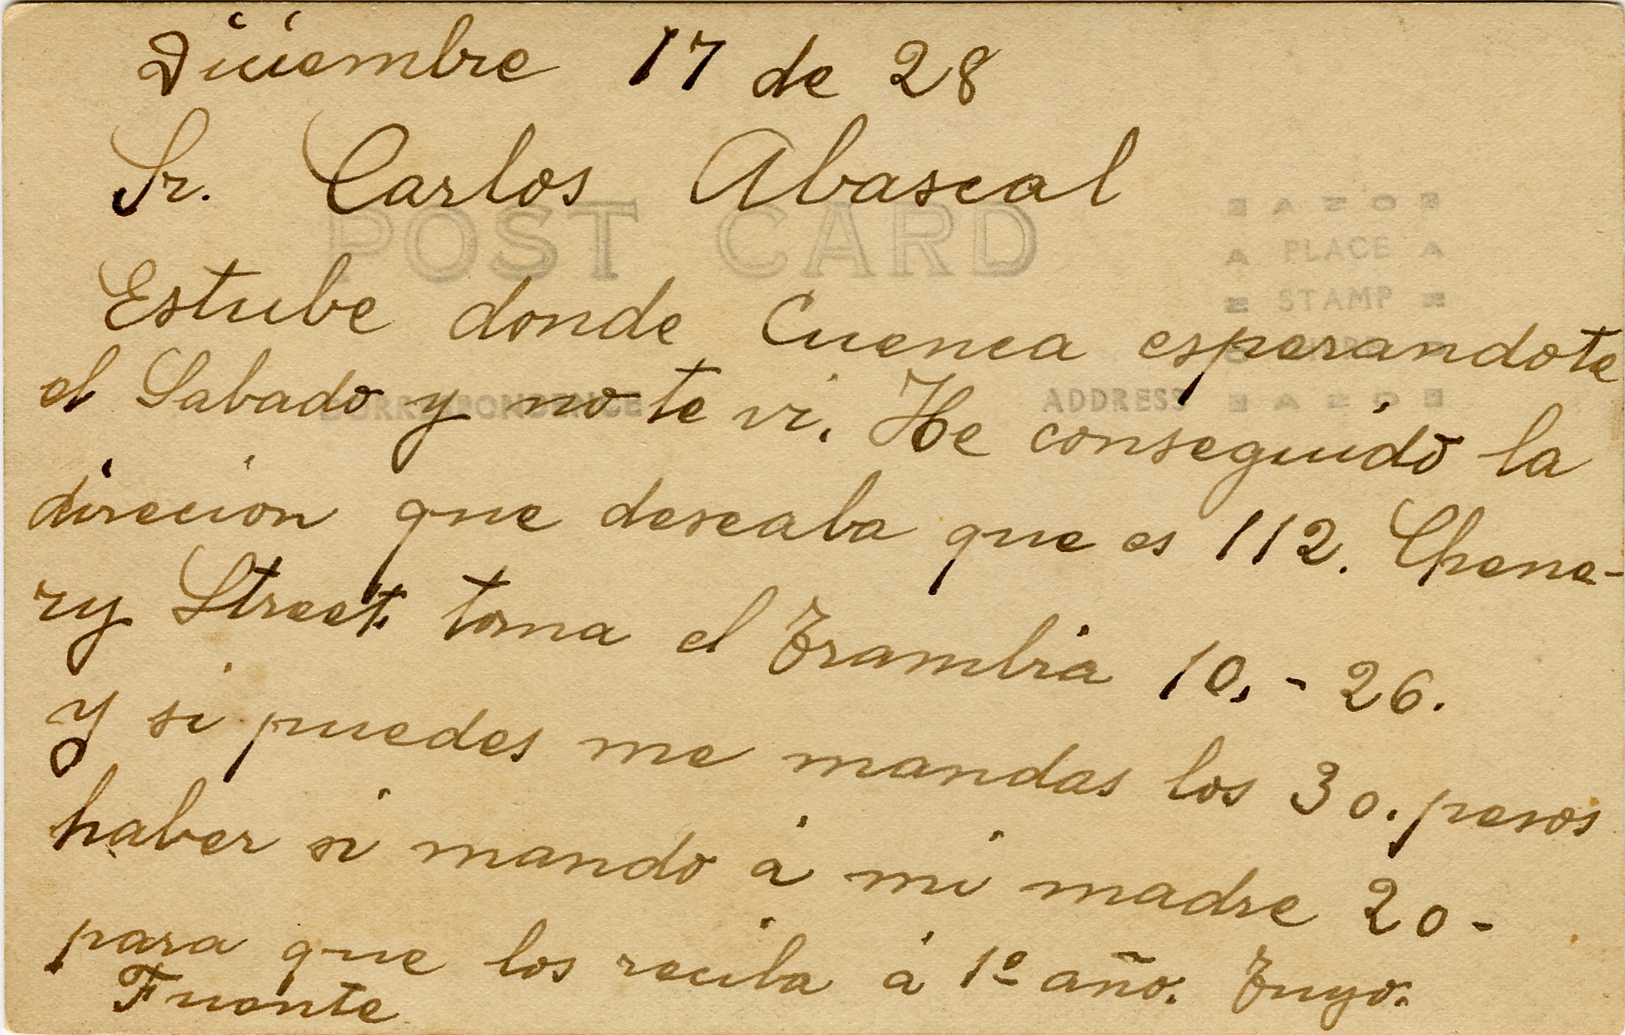 Diciembre 17 de 28
Sr. Carlos Abascal
POST CARD
AZO
PLACE
STAMP
Estube donde Cuenca esperandote
CORRESPONDENCE
ADDRESS
AZO
el Sabado y no te vi. He conseguido la
direcion que deseaba que es 112. Chene-
ry Street. toma el Trambia 10,-26.
y si puedes me mandas los 30. pesos
haber si mando á mi madre 20-
para que los reciba á 1º año. Tuyo.
Fuente